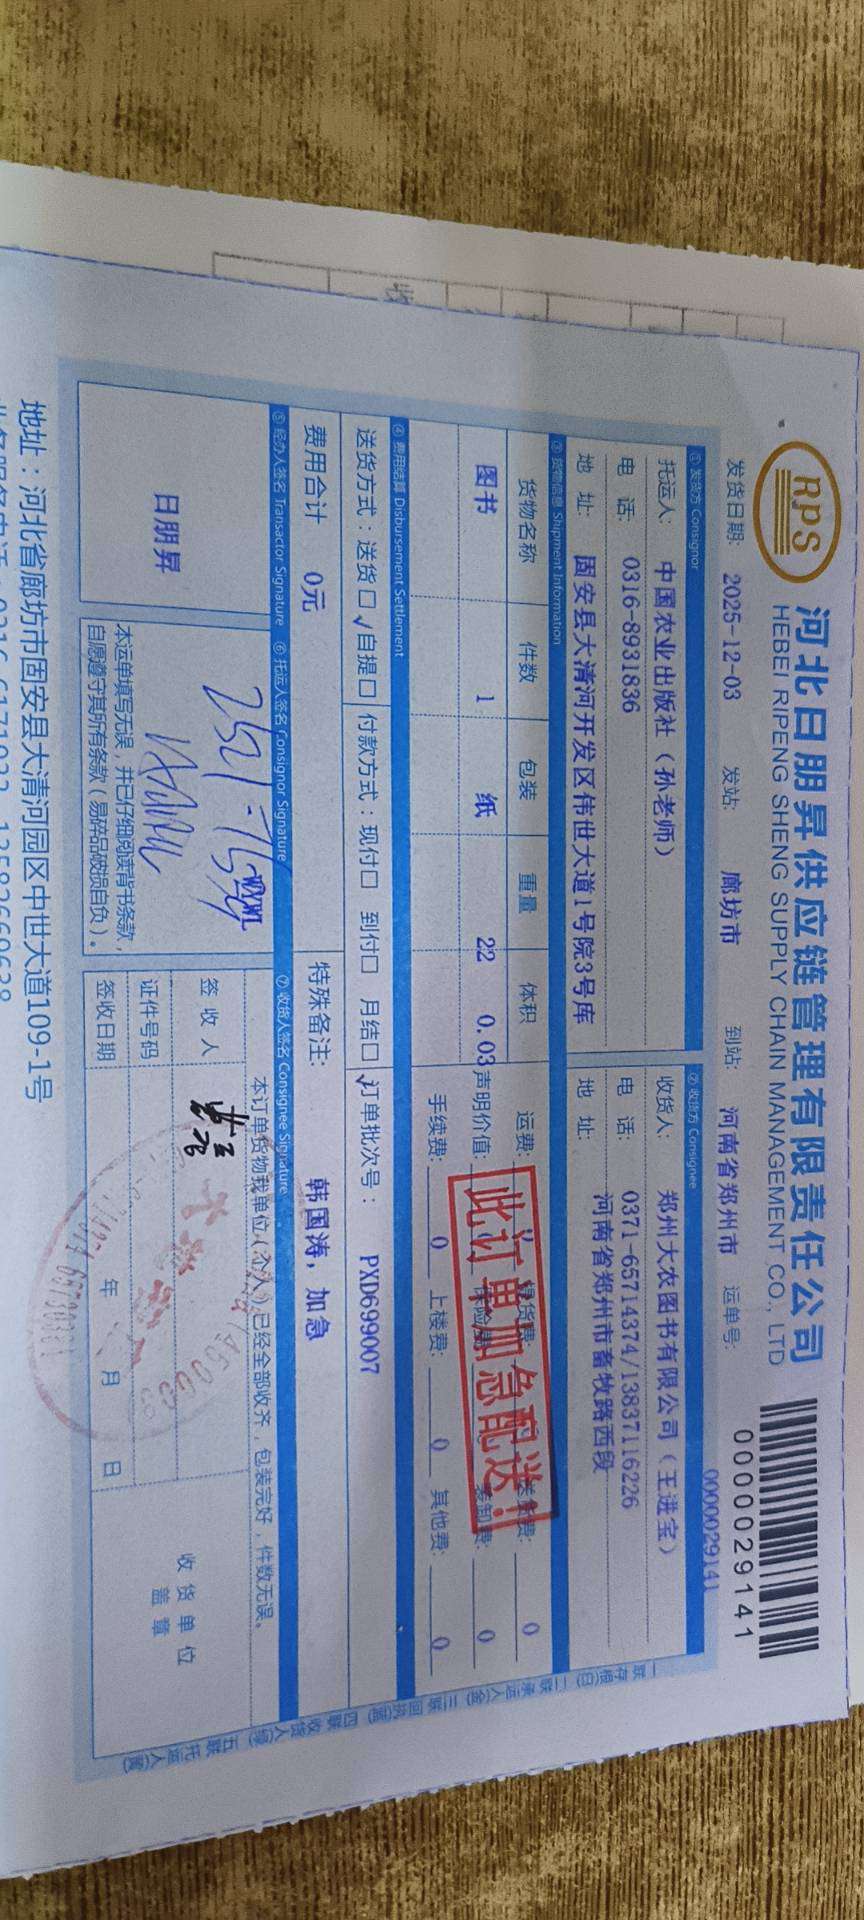 RPS
河北日朋昇供应链管理有限责任公司
HEBEI RIPENG SHENG SUPPLY CHAIN MANAGEMENT CO., LTD
0000029141
发货日期: 2025-12-03 发站: 廊坊市 到站: 河南省郑州市 运单号: 0000029141
① 发货方 Consignor ② 收货方 Consignee
托运人: 中国农业出版社(孙老师) 收货人: 郑州大农图书有限公司(王进宝)
电 话: 0316-8931836 电 话: 0371-65714374/13837116226
地 址: 固安县大清河开发区伟世大道1号院3号库 地 址: 河南省郑州市畜牧路西段
③ 货物信息 Shipment Information
货物名称 件数 包装 重量 体积 运费: 0
图书 1 纸 22 0.03 声明价值: 装卸费: 0
手续费: 0 上楼费: 0 其他费: 0
此订单加急配送!
④ 费用结算 Disbursement Settlement
送货方式:送货□ √自提□ 付款方式:现付□ 到付□ 月结□ √ 订单批次号: PXD699007
费用合计 0元 特殊备注: 韩国涛,加急
⑤ 经办人签名 Transactor Signature ⑥ 托运人签名 Consignor Signature ⑦ 收货人签名 Consignee Signature
日朋昇
本订单货物我单位(个人)已经全部收齐,包装完好,件数无误。
签 收 人
证件号码
签收日期 年 月 日
收货单位
盖 章
本运单填写无误,并已仔细阅读背书条款,
自愿遵守其所有条款(易碎品破损自负)。
一联存根(白) 二联承运人(金) 三联回执(蓝) 四联收货人(绿) 五联托运人(黄)
地址:河北省廊坊市固安县大清河园区中世大道109-1号